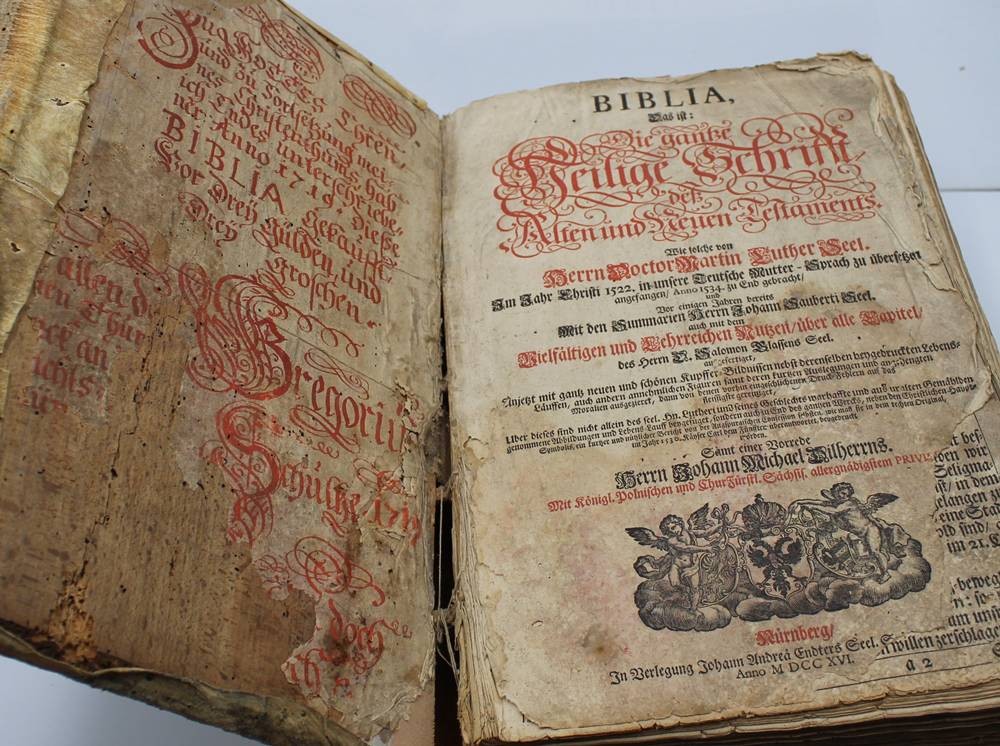 Zu GOTTES Ehren,
und zu Fortsetzung mei-
nes Christenthums, hab
ich Endes unterschriebe-
ner Anno 1719. Diese
BIBLIA Gekaufft,
Vor Drey Gülden, und
Drey groschen.
Gregorius
Schultze 1719
allen d
doch
BIBLIA,
Das ist:
Die gantze
Heilige Schrifft
deß
Alten und Neuen Testaments.
Wie solche von
Herrn Doctor Martin Luther Seel.
Im Jahr Christi 1522. in unsere Teutsche Mutter-Sprach zu übersetzen
angefangen/ Anno 1534. zu End gebracht/
und
Vor einigen Jahren bereits
Mit den Summarien Herrn Johann Sauberti Seel.
auch mit dem
Vielfältigen und Lehrreichen Nutzen/ über alle Capitel/
des Herrn D. Salomon Glassens Seel.
außgefertiget,
Anjetzt mit gantz neuen und schönen Kupffer-Bildnussen nebst derenselben beygedruckten Lebens-
Läufften, auch andern annehmlichen Figuren samt deren kurtzen Auslegungen und angehengten
Moralien ausgezieret, dann von denen vorhin eingeschlichenen Druck-Fehlern auf das
fleissigste gereiniget,
Uber dieses sind nicht allein des seel. Hn. Lutheri und seines Geschlechts warhaffte und aus uralten Gemählden
genommene Abbildungen und Lebens-Lauff beygefüget, sondern auch zu End des gantzen Wercks, neben den Christlichen Haupt-
Symbolis, ein kurtzer und nützlicher Bericht von der Augspurgischen Confession sambt
im Jahr 1530. Käyser Carl dem Fünfften überantwortet, beygedruckt
worden.
Samt einer Vorrede
Herrn Johann Michael Dilherrns.
Mit Königl. Polnischen und ChurFürstl. Sächsis. allergnädigstem PRIVIL.
Nürnberg/
In Verlegung Johann Andreä Endters Seel.
Anno M DCC XVI.
in dem
elangen z
eine Sta
old sind/
im 21. C
beweg
willen zerschlage
a 2